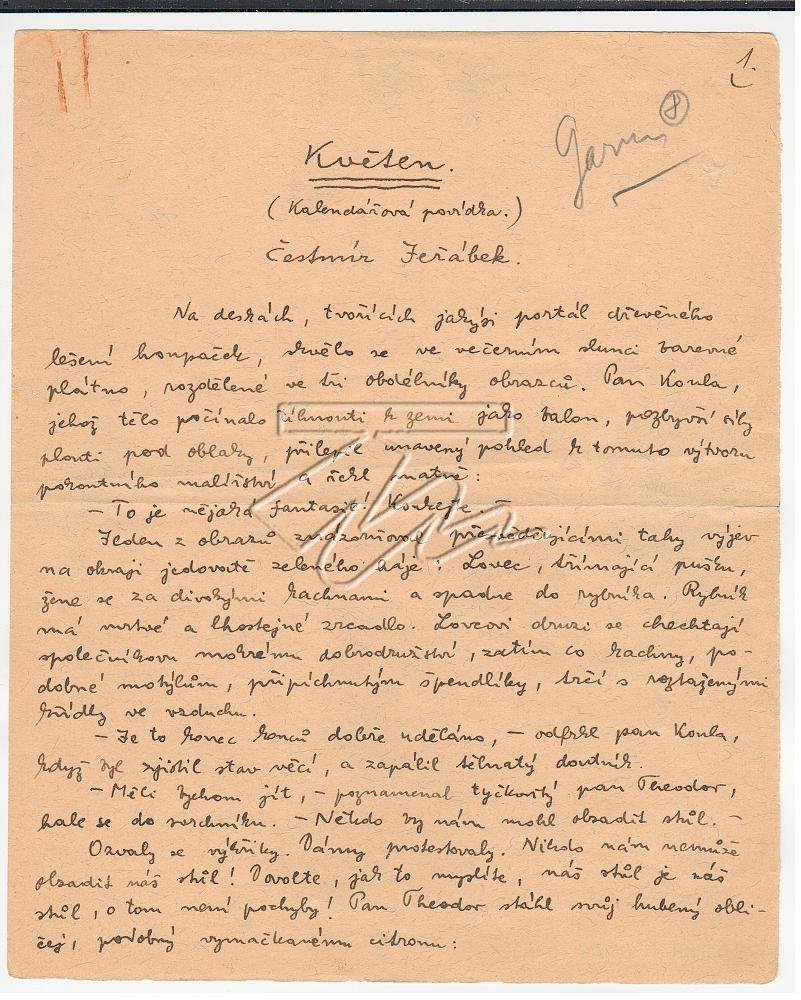 1.
Garm 8
Květen.
(Kalendářová povídka.)
Čestmír Jeřábek.
Na deskách, tvořících jakýsi portál dřevěného
lešení houpaček, skvělo se ve večerním slunci barevné
plátno, rozdělené ve tři obdélníky obrazců. Pan Koula,
jehož tělo počínalo tíhnouti k zemi jako balon, pozbyvší síly
plouti pod oblaky, přilepil unavený pohled k tomuto výtvoru
pokoutního malířství a řekl matně:
– To je nějaká fantasie! Koukejte. –
Jeden z obrazů znázorňoval přesvědčujícími tahy výjev
na okraji jedovatě zeleného háje: Lovec, třímající pušku,
žene se za divokými kachnami a spadne do rybníka. Rybník
má mrtvé a lhostejné zrcadlo. Lovcovi druzi se chechtají
společníkovu mokrému dobrodružství, zatím co kachny, po-
dobné motýlům, připíchnutým špendlíky, trčí s roztaženými
křídly ve vzduchu.
– Je to konec konců dobře uděláno, – odfrkl pan Koula,
když byl zjistil stav věcí, a zapálil tělnatý doutník.
– Měli bychom jít, – poznamenal tyčkovitý pan Theodor,
hale se do svrchníku. – Někdo by nám mohl obsadit stůl. –
Ozvaly se výkřiky. Dámy protestovaly. Nikdo nám nemůže
obsadit náš stůl! Dovolte, jak to myslíte, náš stůl je náš
stůl, o tom není pochyby! Pan Theodor stáhl svůj hubený obli-
čej, podobný vymačkanému citronu: